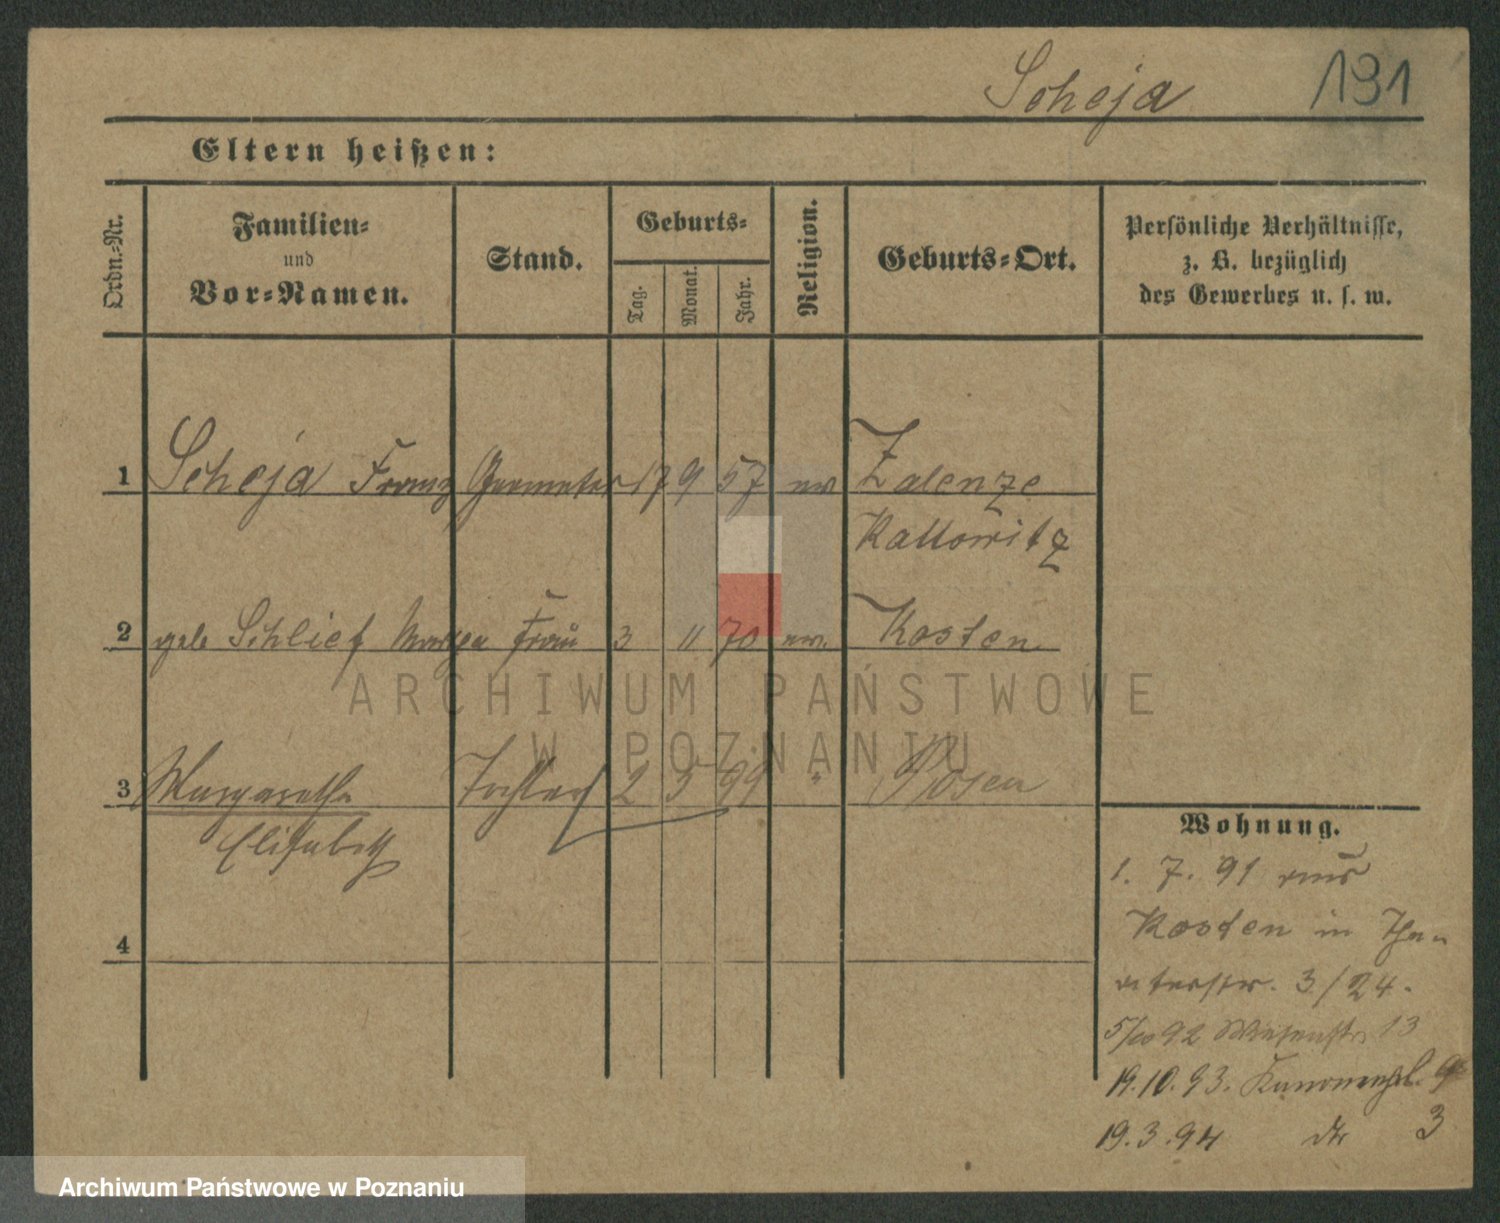 Scheja 191
Eltern heißen:
Ordn.-Nr.
Familien-
und
Vor-Namen.
Stand.
Geburts-
Tag.
Monat.
Jahr.
Religion.
Geburts-Ort.
Persönliche Verhältnisse,
z. B. bezüglich
des Gewerbes u. s. w.
1 Scheja Franz Geometer 17 9 57 ev Zalenze
Kattowitz
2 geb Schlief Frau 3 11 70 ev. Kosten
ARCHIWUM PAŃSTWOWE
W POZNANIU
3 Margarethe Tochter 2 5 99 " Posen
Elisabeth
4
Wohnung.
1. 7. 91 aus
Kosten in Thea-
terstr. 3/24.
92 Wiesenstr. 13
19.10.93. Kanonenpl. 9
19.3.94 do 3
Archiwum Państwowe w Poznaniu